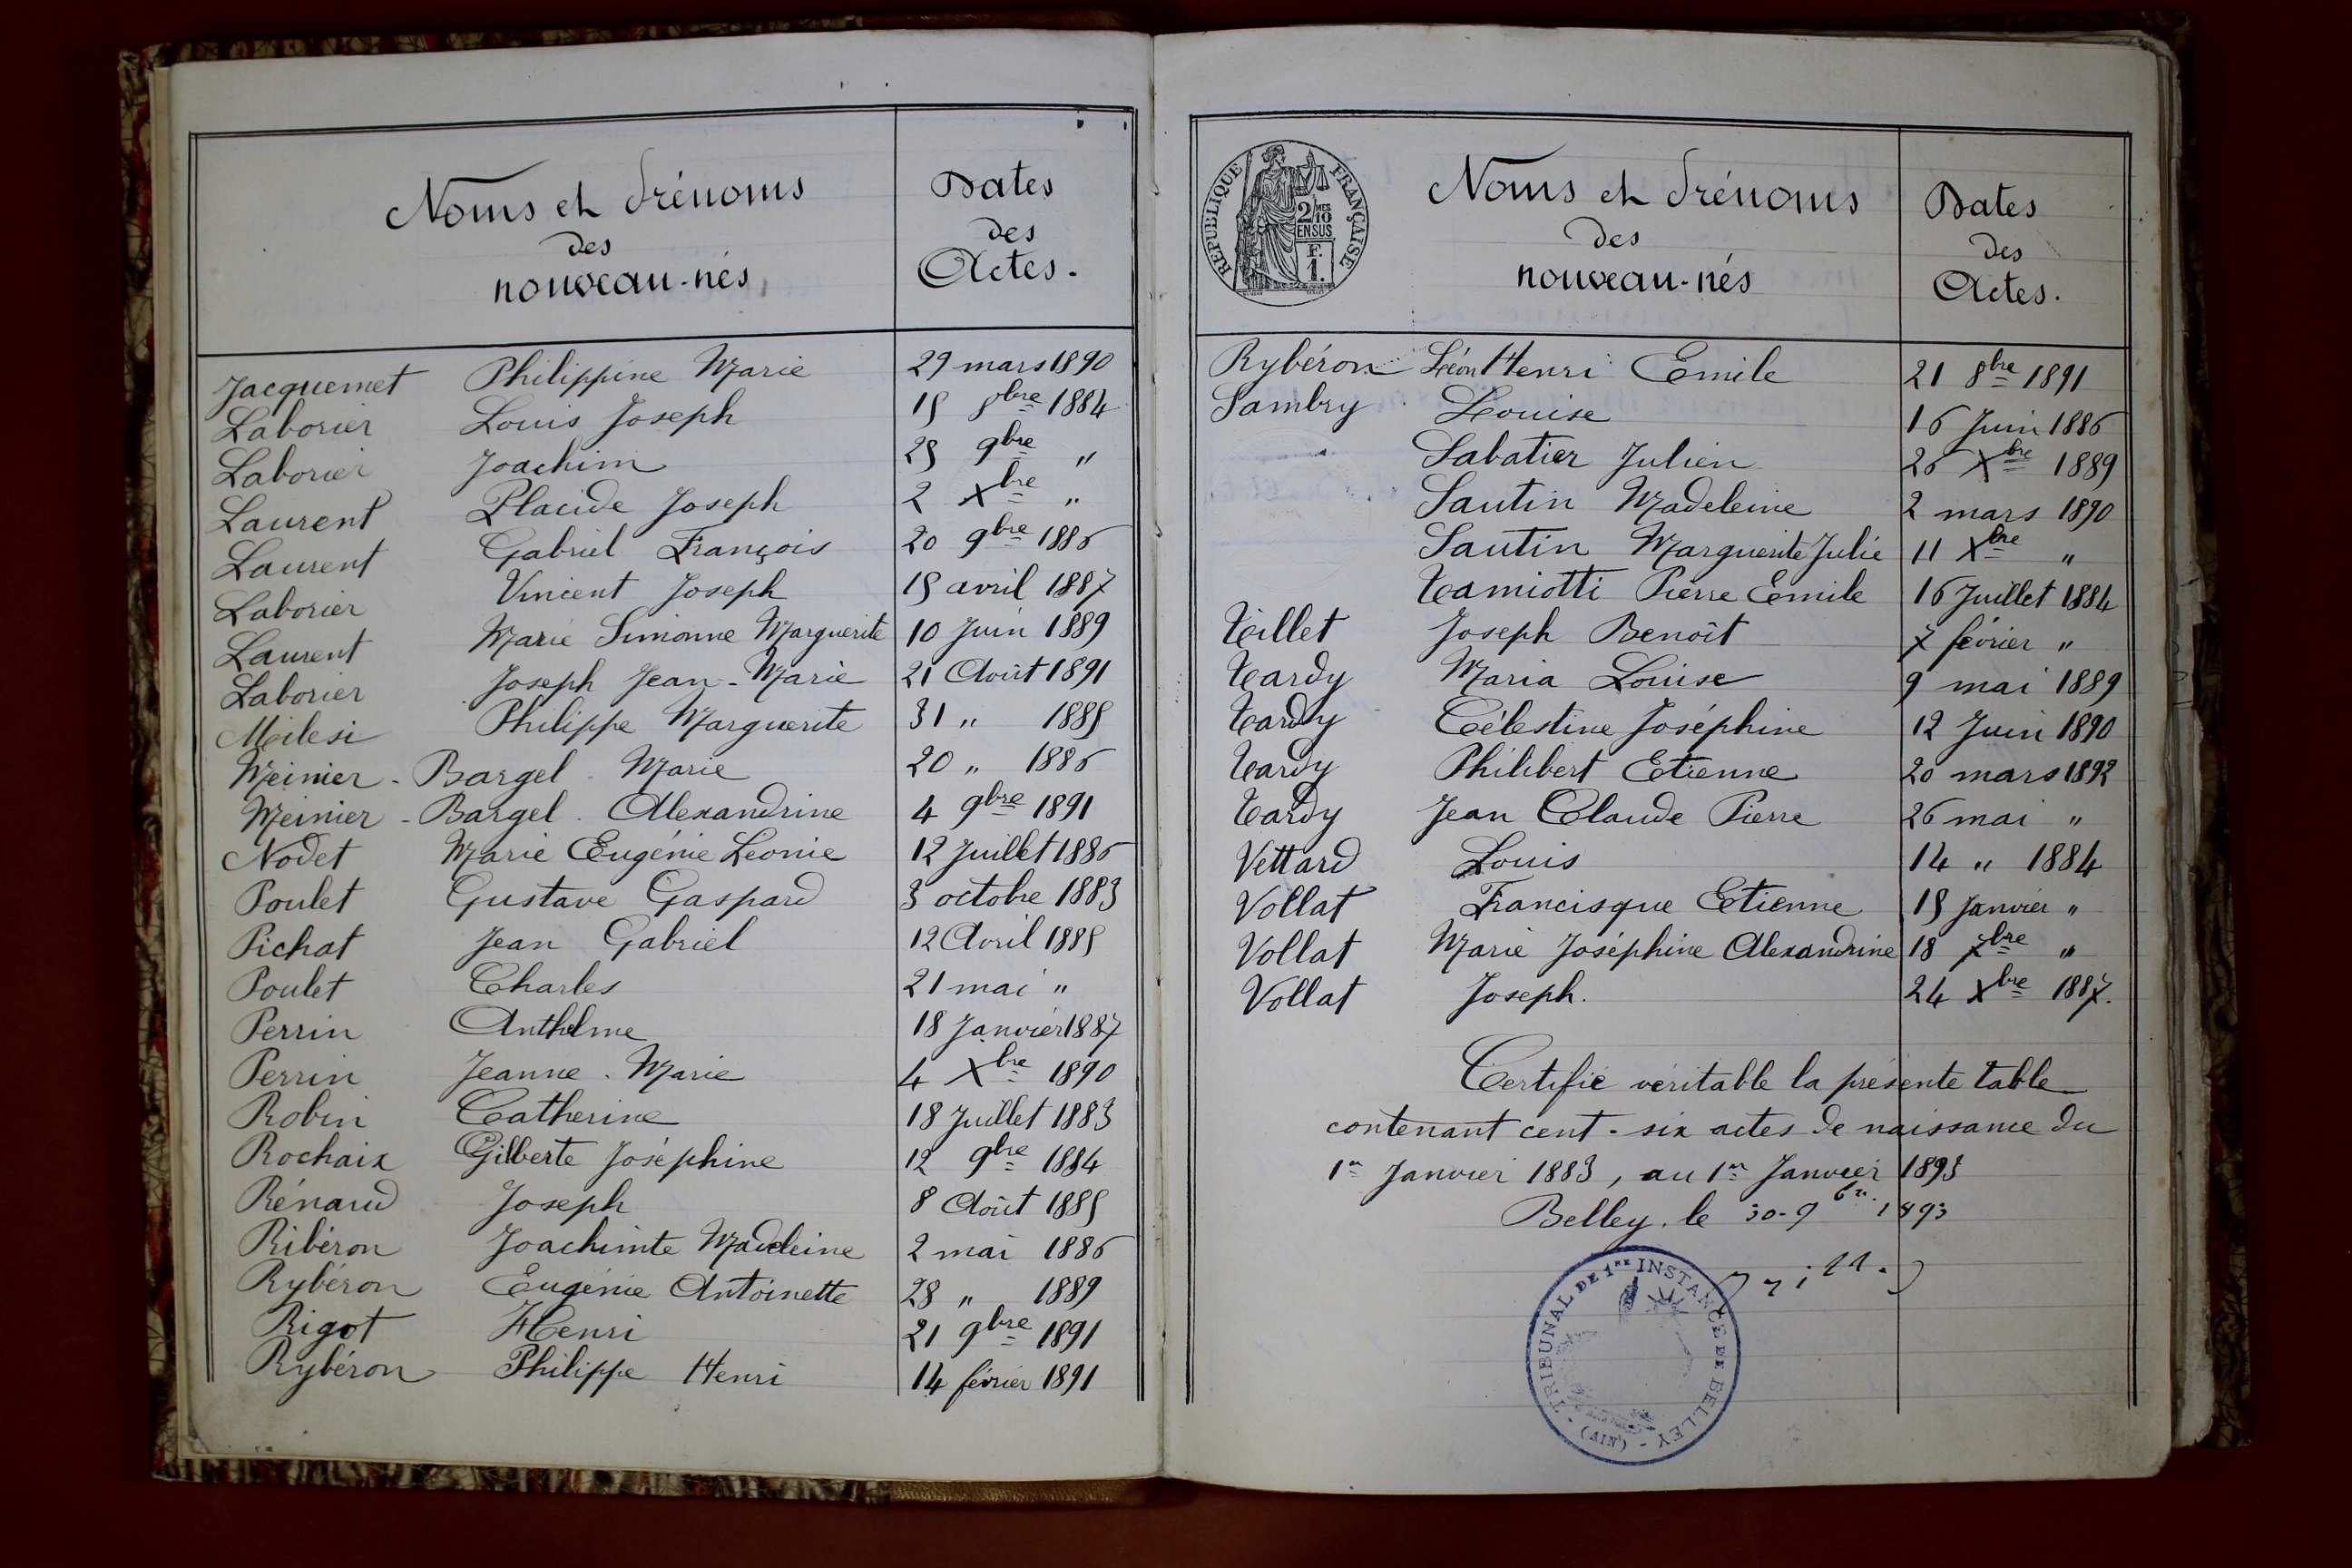 Noms et Prénoms
des
nouveau-nés
Dates
des
Actes.
Jacquemet Philippine Marie 29 mars 1890
Laborier Louis Joseph 15 8bre 1884
Laborier Joachim 25 9bre "
Laurent Placide Joseph 2 Xbre "
Laurent Gabriel François 20 9bre 1886
Laborier Vincent Joseph 15 avril 1887
Laurent Marie Simonne Marguerite 10 Juin 1889
Laborier Joseph Jean-Marie 21 Août 1891
Milesi Philippe Marguerite 31 " 1885
Meinier - Bargel Marie 20 " 1886
Meinier - Bargel Alexandrine 4 9bre 1891
Nodet Marie Eugénie Leonie 12 Juillet 1886
Poulet Gustave Gaspard 3 octobre 1883
Pichat Jean Gabriel 12 Avril 1885
Poulet Charles 21 mai "
Perrin Anthelme 18 Janvier 1887
Perrin Jeanne-Marie 4 Xbre 1890
Robin Catherine 18 Juillet 1883
Rochaix Gilberte Joséphine 12 9bre 1884
Rénaud Joseph 8 Août 1885
Ribéron Joachimte Madeleine 2 mai 1886
Rybéron Eugénie Antoinette 28 " 1889
Rigot Henri 21 9bre 1891
Rybéron Philippe Henri 14 février 1891
REPUBLIQUE FRANÇAISE
2/10 MES
EN SUS
F.
1.
Noms et Prénoms
des
nouveau-nés
Dates
des
Actes.
Rybéron Léon Henri Emile 21 8bre 1891
Sambry Louise 16 Juin 1886
Sabatier Julien 26 Xbre 1889
Sautin Madeleine 2 mars 1890
Sautin Marguerite Julie 11 Xbre "
Tamiotti Pierre Emile 16 Juillet 1884
Tillet Joseph Benoît 7 février "
Tardy Maria Louise 9 mai 1889
Tardy Célestine Joséphine 12 Juin 1890
Tardy Philibert Etienne 20 mars 1892
Tardy Jean Claude Pierre 26 mai "
Vettard Louis 14 " 1884
Vollat Francisque Etienne 15 Janvier "
Vollat Marie Joséphine Alexandrine 18 Xbre "
Vollat Joseph. 24 Xbre 1887.
Certifié véritable la présente table
contenant cent-six actes de naissance du
1er Janvier 1883, au 1er Janvier 1893
Belley. le 30-9bre 1893
TRIBUNAL DE 1RE INSTANCE DE BELLEY - (AIN) -